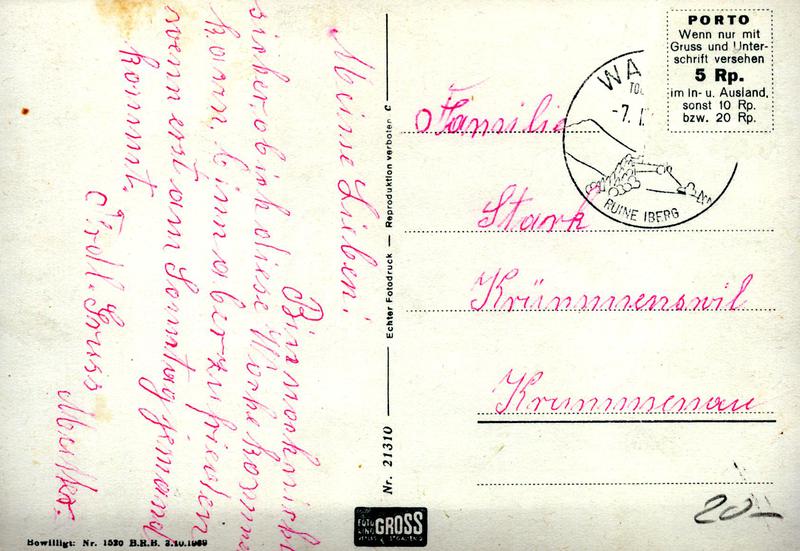 Meine Lieben!
Bin noch nicht
sicher, ob ich diese Woche komme
kann, bin aber zufrieden
wenn erst am Sonntag jemand
kommt.
Frdl. Gruss
Mutter.
Echter Fotodruck — Reproduktion verboten
Nr. 21310
FOTO GROSS
Bewilligt: Nr. 1520 B.R.B. 3.10.1939
PORTO
Wenn nur mit
Gruss und Unter-
schrift versehen
5 Rp.
im In- u. Ausland,
sonst 10 Rp.
bzw. 20 Rp.
WA
-7. I
RUINE IBERG
Familie
Stark
Krümmenswil
Krummenau
20-